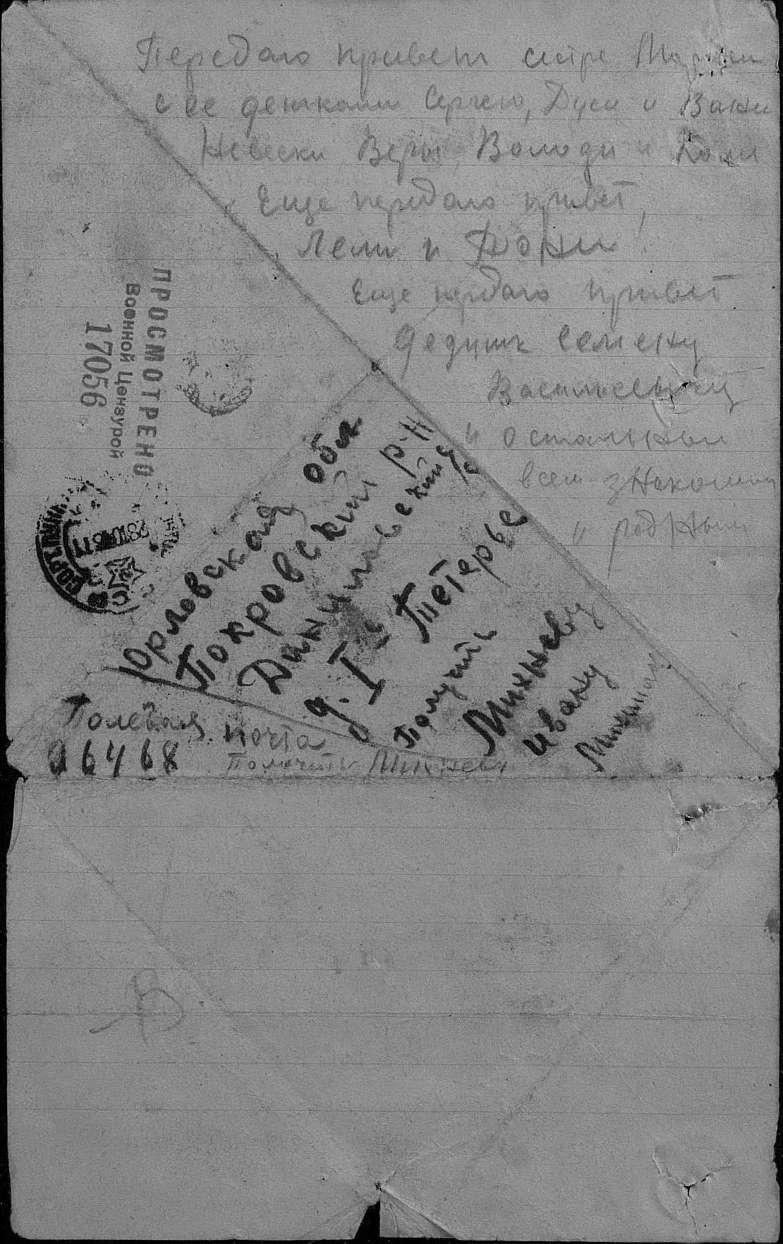 Передаю привет систре Марии
с ее детками Сергею, Дуси и Вани
Невески Веры, Володи и Коли
Еще передаю привет,
Лели и Тони!
Еще передаю привет
дедушк Семену
Васильевичу
и остальным
всем знакомым
и родным
ПРОСМОТРЕНО
Военной Цензурой
17056
Орловская обл
Покровский р-н
Даниловский
д. I е Тетерье
Получить
Михневу
Ивану
Полевая почта
06468
Получить Михневу